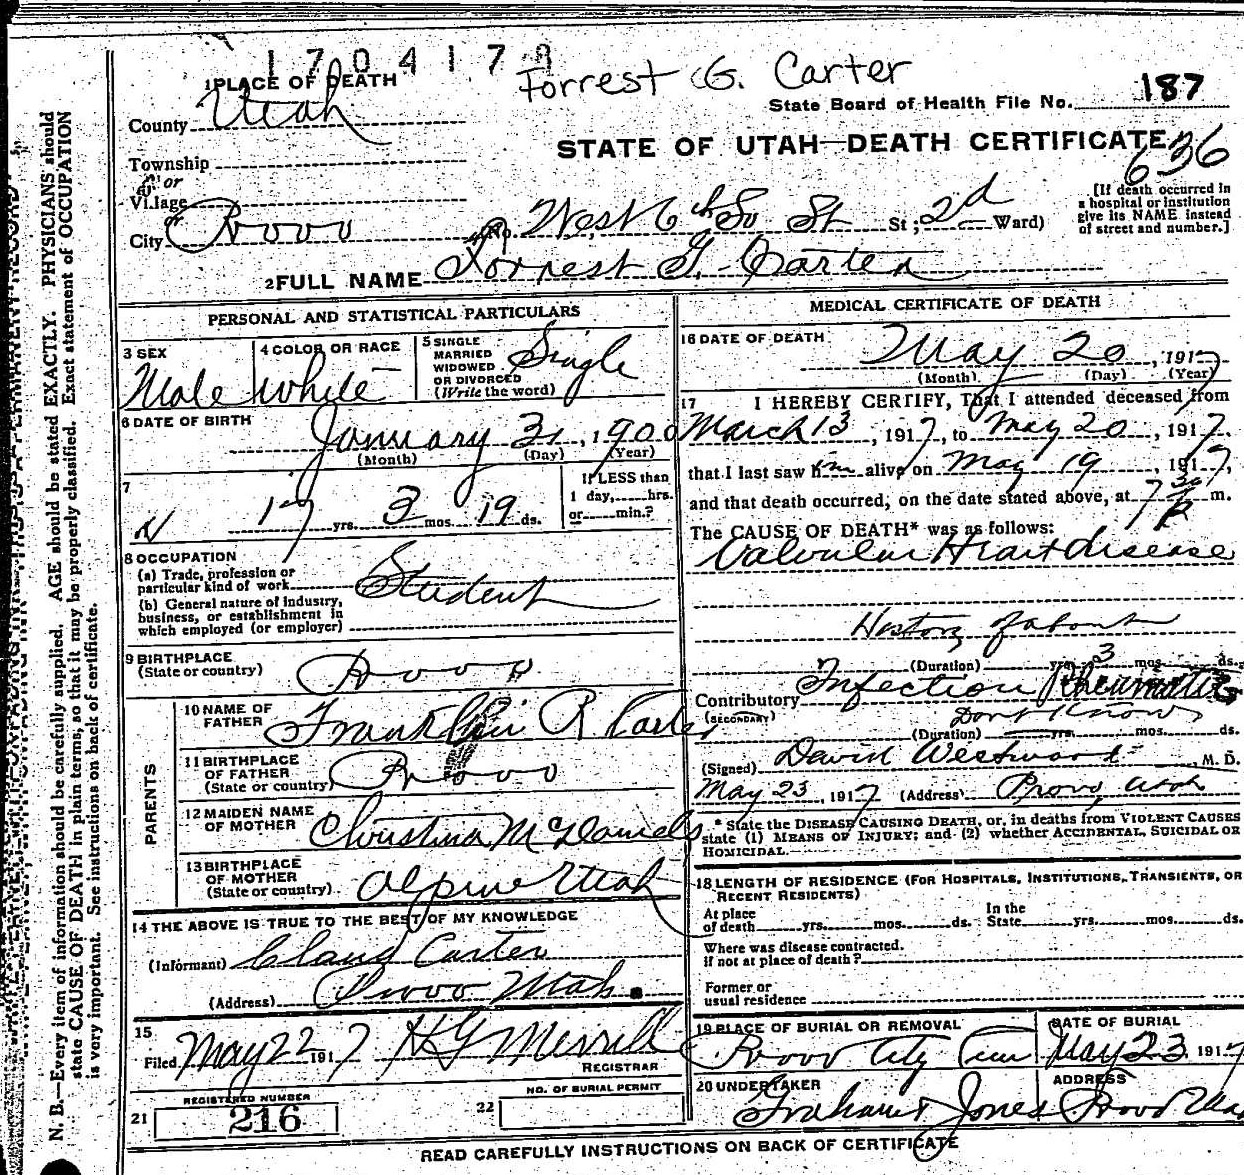 1704179
Forrest G. Carter
1 PLACE OF DEATH
State Board of Health File No. 187
County Utah
STATE OF UTAH—DEATH CERTIFICATE
636
Township
or
Village
or
City Provo
No. West 6th So St St; 2d Ward)
[If death occurred in
a hospital or institution
give its NAME instead
of street and number.]
2 FULL NAME Forrest G. Carter
PERSONAL AND STATISTICAL PARTICULARS
3 SEX
Male
4 COLOR OR RACE
White
5 SINGLE
MARRIED
WIDOWED
OR DIVORCED
(Write the word)
Single
6 DATE OF BIRTH
January 31, 1900
(Month) (Day) (Year)
7
17 yrs. 3 mos. 19 ds.
If LESS than
1 day,......hrs.
or......min.?
8 OCCUPATION
(a) Trade, profession or
particular kind of work Student
(b) General nature of industry,
business, or establishment in
which employed (or employer)
9 BIRTHPLACE
(State or country) Provo
PARENTS
10 NAME OF
FATHER Franklin R Carter
11 BIRTHPLACE
OF FATHER
(State or country) Provo
12 MAIDEN NAME
OF MOTHER Christina McDaniels
13 BIRTHPLACE
OF MOTHER
(State or country) Alpine Utah
14 THE ABOVE IS TRUE TO THE BEST OF MY KNOWLEDGE
(Informant) Claud Carter
(Address) Provo Utah.
15
Filed May 22 1917 H G Merrill
REGISTRAR
REGISTERED NUMBER
21 216
NO. OF BURIAL PERMIT
22
MEDICAL CERTIFICATE OF DEATH
16 DATE OF DEATH
May 20, 1917
(Month) (Day) (Year)
17 I HEREBY CERTIFY, That I attended deceased from
March 13, 1917, to May 20, 1917
that I last saw him alive on May 19, 1917,
and that death occurred, on the date stated above, at 7 30 P m.
The CAUSE OF DEATH* was as follows:
Valvular Heart disease
History of about
(Duration) yrs. 3 mos. ds.
Contributory Infection Rheumatic
(SECONDARY)
Dont Know
(Duration) yrs. mos. ds.
(Signed) David Westwood, M. D.
May 23, 1917 (Address) Provo, Utah
* State the DISEASE CAUSING DEATH, or, in deaths from VIOLENT CAUSES
state (1) MEANS OF INJURY; and (2) whether ACCIDENTAL, SUICIDAL OR
HOMICIDAL.
18 LENGTH OF RESIDENCE (FOR HOSPITALS, INSTITUTIONS, TRANSIENTS, OR
RECENT RESIDENTS)
At place
of death......yrs......mos......ds.
In the
State......yrs......mos......ds.
Where was disease contracted.
if not at place of death?
Former or
usual residence
19 PLACE OF BURIAL OR REMOVAL
Provo City Cem
DATE OF BURIAL
May 23 1917
20 UNDERTAKER
Graham & Jones
ADDRESS
Provo Utah
READ CAREFULLY INSTRUCTIONS ON BACK OF CERTIFICATE
N. B.—Every item of information should be carefully supplied. AGE should be stated EXACTLY. PHYSICIANS should
state CAUSE OF DEATH in plain terms, so that it may be properly classified. Exact statement of OCCUPATION
is very important. See instructions on back of certificate.